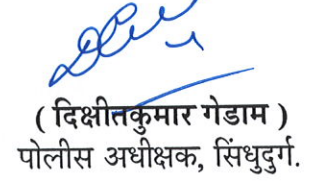 ( दिक्षीतकुमार गेडाम )
पोलीस अधीक्षक, सिंधुदुर्ग.